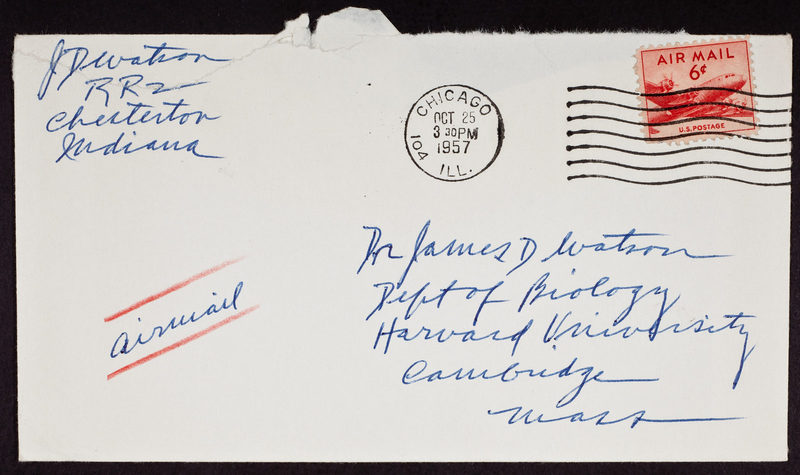 J D Watson
RR 2
Chesterton
Indiana
CHICAGO
OCT 25
3 30 PM
1957
104
ILL.
AIR MAIL
6¢
U.S. POSTAGE
Dr James D Watson
Dept of Biology
Harvard University
Cambridge
Mass
airmail